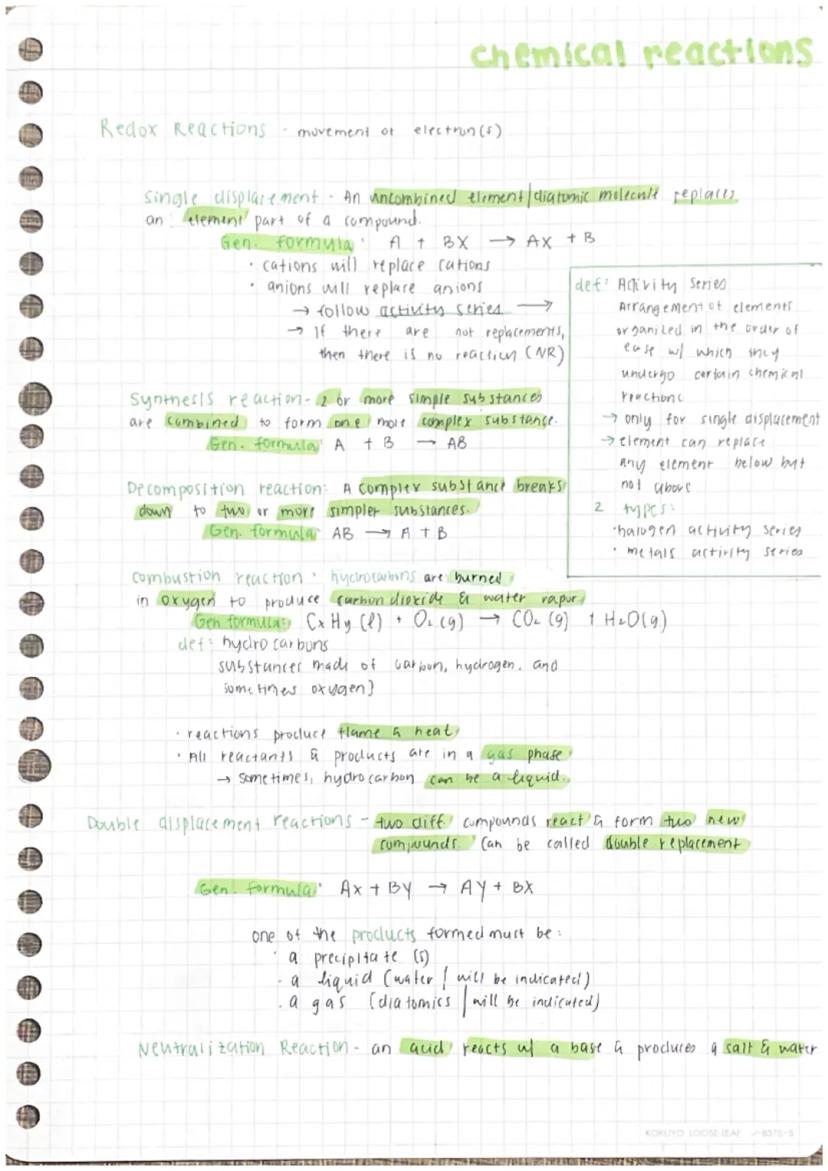 chemical reactions
Redox Reactions - movement of electron(s)
Single displacement - An uncombined element/diatomic molecule replaces
an element part of a compound.
Gen. formula: A + BX → AX + B
• cations will replace cations
• anions will replace anions
→ follow activity series →
→ If there are not replacements,
then there is no reaction (NR)
def: Activity Series
Arrangement of elements
organized in the order of
ease w/ which they
undergo certain chemical
reactions
→ only for single displacement
→ element can replace
any element below but
not above
2 types:
• halogen activity series
• metals activity series
Synthesis reaction - 2 or more simple substances
are combined to form one more complex substance.
Gen. formula: A + B → AB
Decomposition reaction: A complex substance breaks
down to two or more simpler substances.
Gen. formula: AB → A + B
combustion reaction: hydrocarbons are burned
in oxygen to produce carbon dioxide & water vapor
Gen formula: CxHy (l) + O₂ (g) → CO₂ (g) + H₂O(g)
def: hydrocarbons
substances made of carbon, hydrogen, and
sometimes oxygen]
• reactions produce flame & heat
• All reactants & products are in a gas phase
→ sometimes, hydrocarbon can be a liquid.
Double displacement reactions - two diff. compounds react & form two new
compounds. Can be called double replacement
Gen. formula: Ax + By → Ay + Bx
one of the products formed must be:
• a precipitate (s)
• a liquid (water / will be indicated)
• a gas (diatomics / will be indicated)
Neutralization Reaction - an acid reacts w/ a base & produces a salt & water
KOKUYO LOOSE-LEAF ノ-837S-5